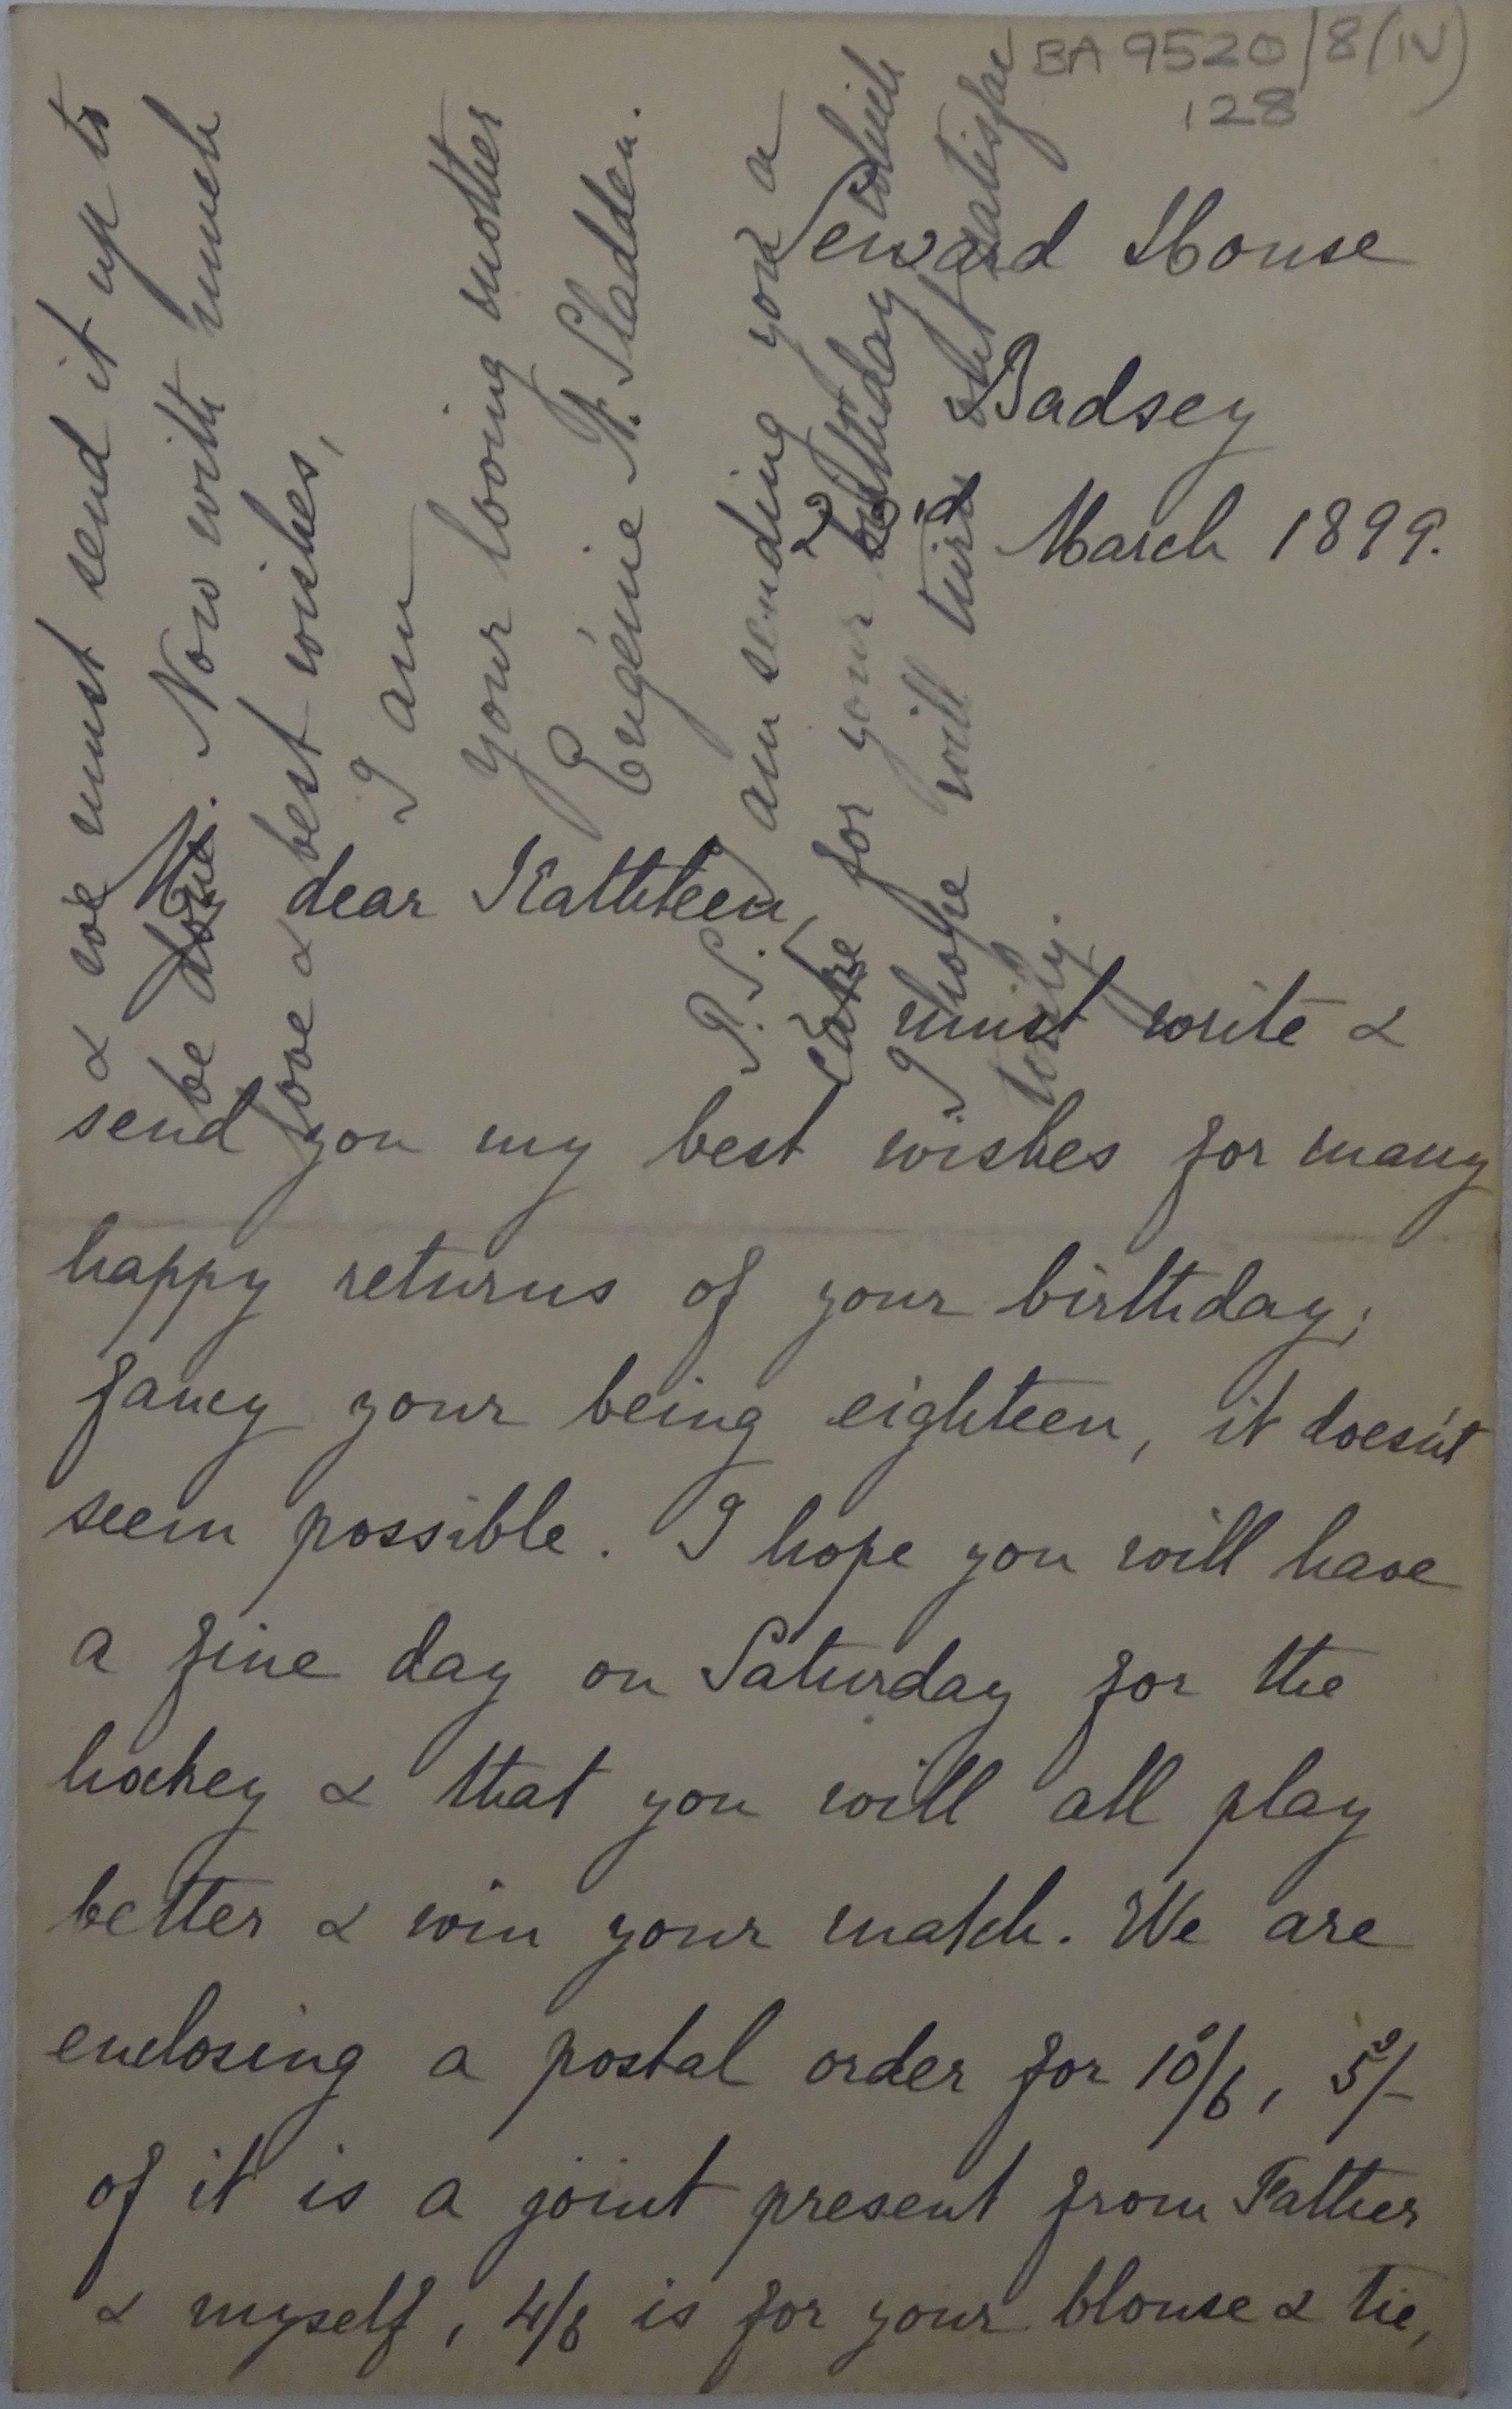 BA 9520/8(IV)
128
Seward House
Badsey
23rd March 1899.
My dear Kathleen,
I must write &
send you my best wishes for many
happy returns of your birthday;
fancy your being eighteen, it doesn't
seem possible. I hope you will have
a fine day on Saturday for the
hockey & that you will all play
better & win your match. We are
enclosing a postal order for 10s/6, 5s/-
of it is a joint present from Father
& myself, 4/6 is for your blouse & tie,
& we must send it up to
be done. Now with much
love & best wishes,
I am
your loving mother
Eugénie N. Sladden.
P.S. I am sending you a
cake for your birthday which
I hope will turn out satisfac
torily.